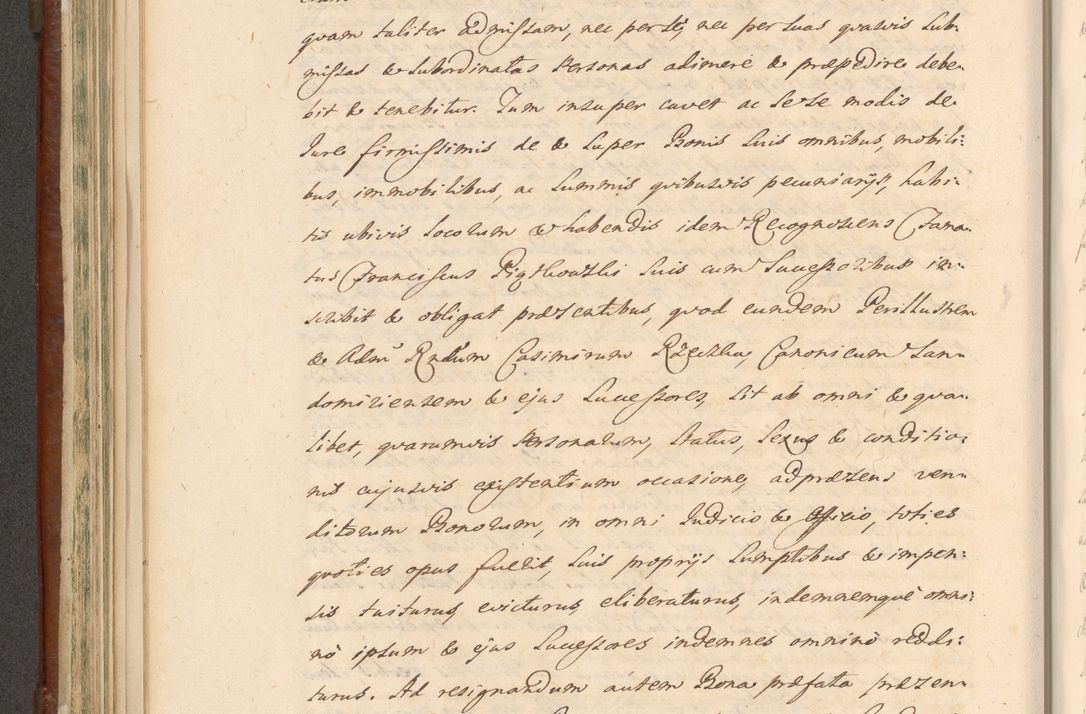 quam taliter admissam, nec per se, nec per suas quasvis sub-
missas & subordinatas Personas adimere & præpedire debe-
bit & tenebitur. Tum insuper cavet ac sese modis de
Jure firmissimis de & super Bonis suis omnibus, mobili-
bus, immobilibus, ac summis quibusvis pecuniarijs, habi-
tis ubivis locorum & habendis idem Recognoscens
tus Franciscus suis cum Successoribus in-
scribit & obligat præsentibus, quod eundem Perillustrem
& Adm Rndum Casimirum Canonicum San-
domiriensem & ejus Successores, sit ab omni & qua-
libet, quarumvis Personarum, status, sexus & conditio-
nis cujusvis existentium occasione, ad præsens ven-
ditorum Bonorum, in omni Judicio & Officio, toties
quoties opus fuerit, suis proprijs sumptibus & impen-
sis tuiturus, evicturus, eliberaturus, indemnemque omni-
nò ipsum & ejus Successores indemnes omninò reddi-
turus. Ad resignandum autem Bona præfata præsen-